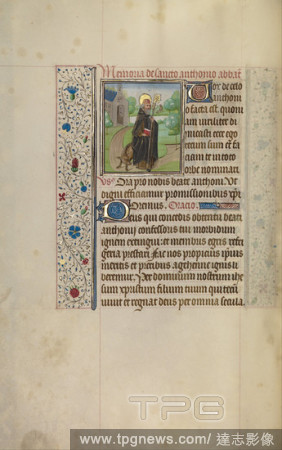 Memoria de sancto anthonio abbate
Vox de celo
anthoni
o facta est. quoni
am viriliter di
micasti ecce ego
tecum sum et fa
ciam te in toto
orbe nominari
Vs Ora pro nobis beate anthoni. Vt
digni efficiamur promissionibus xpi
Oremus. Oracio.
Deus qui concedis obtentu beati
anthonii confessoris tui morbidum
ignem extingui: et membris egris refri
geria prestari: fac nos propiciis ipsius
meritis et precibus a gehenne ignis li
berari. Per dominum nostrum ihe
sum xpistum filium tuum qui tecum
viuit et regnat deus per omnia secula
TPG
www.tpgnews.com/達志影像